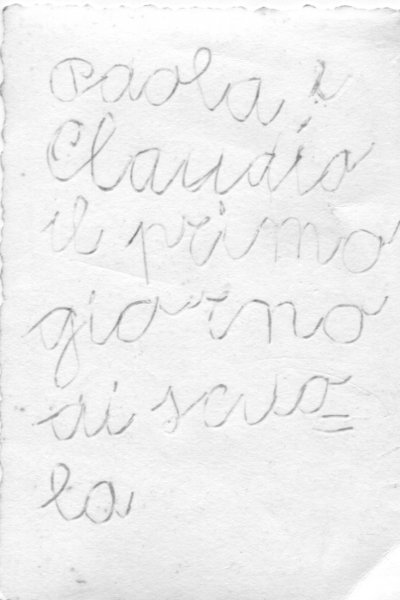 Paola e
Claudio
il primo
giorno
di scuo=
la